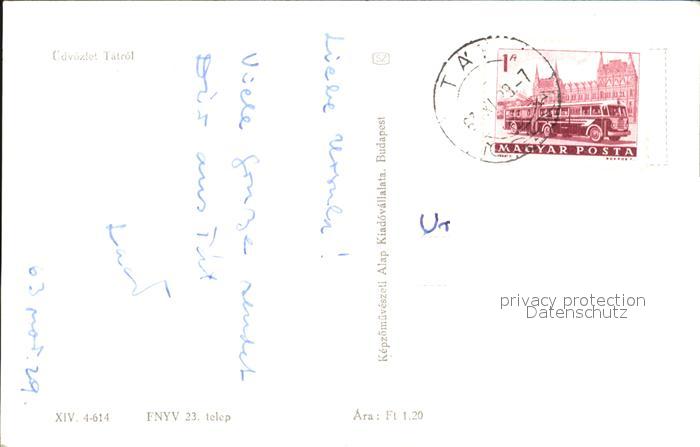 Üdvözlet Tátról
Liebe Ursula!
Viele Grüsse sendet
Dir aus Tát
63 nov. 29.
XIV. 4-614 FNYV 23. telep Ára: Ft 1.20
Képzőművészeti Alap Kiadóvállalata, Budapest
TÁT
1 Ft
MAGYAR POSTA
privacy protection
Datenschutz